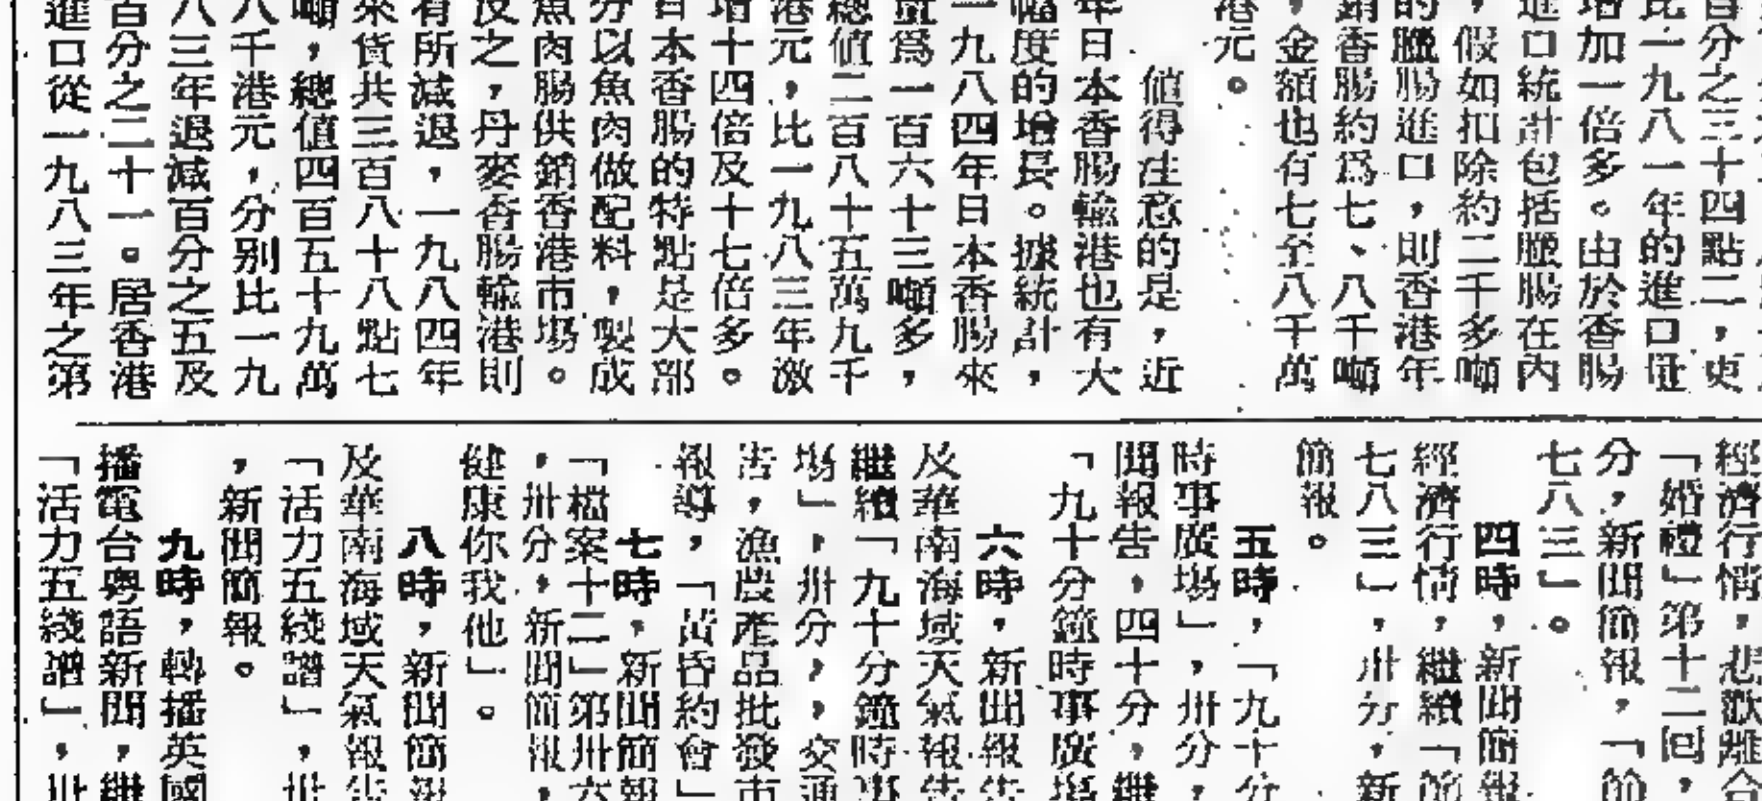 百分之三十四點二，更
比一九八一年的進口量
增加一倍多。由於香腸
進口統計包括臘腸在內
，假如扣除約二千多噸
的臘腸進口，則香港年
銷香腸約爲七、八千噸
，金額也有七至八千萬
港元。
值得注意的是，近
年日本香腸輸港也有大
幅度的增長。據統計，
一九八四年日本香腸來
量爲一百六十三噸多，
總值二百八十五萬九千
港元，比一九八三年激
增十四倍及十七倍多。
日本香腸的特點是大部
分以魚肉做配料，製成
魚肉腸供銷香港市場。
反之，丹麥香腸輸港則
有所減退，一九八四年
來貨共三百八十八點七
噸，總值四百五十九萬
八千港元，分別比一九
八三年退減百分之五及
百分之二十一。居香港
進口從一九八三年之第
經濟行情，悲歡離合
「婚禮」第十二回，
分，新聞簡報，「節
七八三」。
四時，新聞簡報
經濟行情，繼續「節
七八三」，卅分，新
簡報。
五時，「九十分
時事廣場」，卅分，
聞報告，四十分，繼
「九十分鐘時事廣場
六時，新聞報告
及華南海域天氣報告
繼續「九十分鐘時事
場」，卅分，，交通
告，漁農產品批發市
報導，「黃昏約會」
七時，新聞簡報
「檔案十二」第卅六
，卅分，新聞簡報，
健康你我他」。
八時，新聞簡報
及華南海域天氣報告
「活力五綫譜」，卅
，新聞簡報。
九時，轉播英國
播電台粵語新聞，繼
「活力五綫譜」，卅